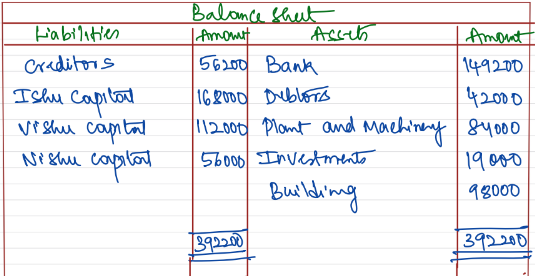 Balance Sheet
Liabilities Amount Assets Amount
Creditors 56200 Bank 149200
Ishu Capital 168000 Debtors 42000
Vishu capital 112000 Plant and Machinery 84000
Nishu capital 56000 Investments 19000
Building 98000
392200 392200